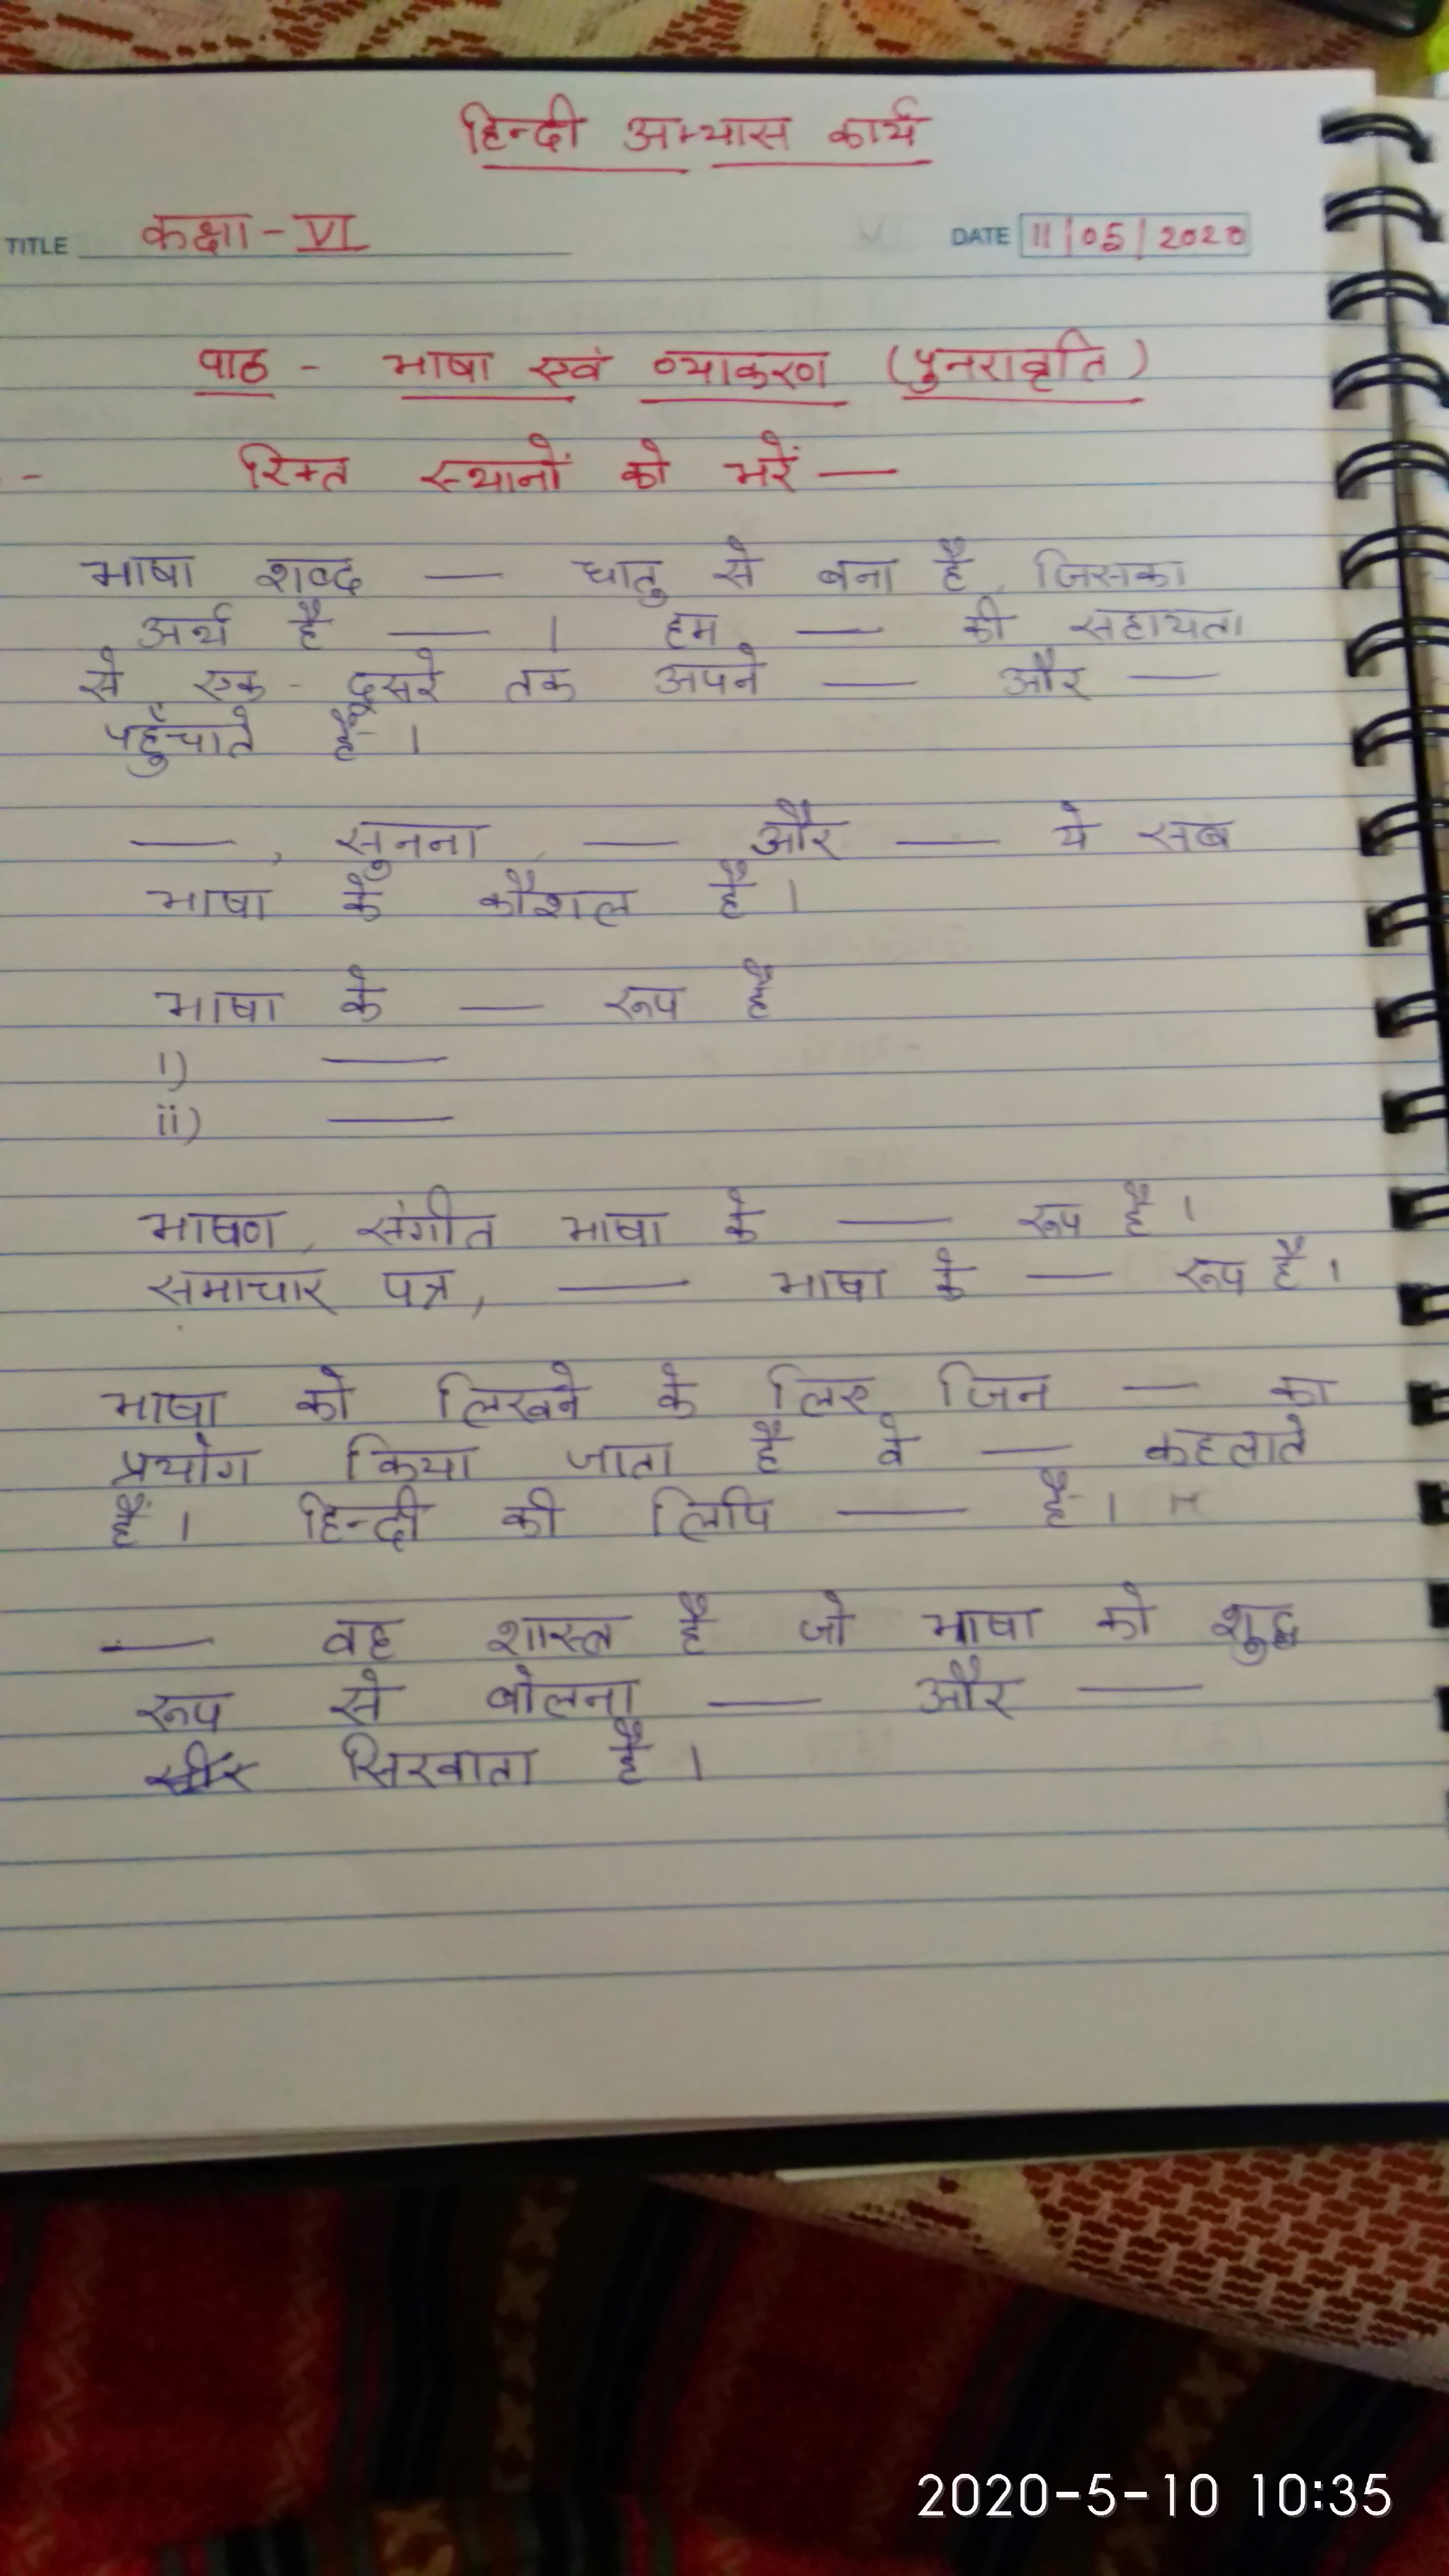 हिन्दी अभ्यास कार्य
TITLE कक्षा - VI DATE 11/05/2020
पाठ - भाषा एवं व्याकरण (पुनरावृति)
- रिक्त स्थानों को भरें —
भाषा शब्द — धातु से बना है, जिसका
अर्थ है — । हम — की सहायता
से एक - दूसरे तक अपने — और —
पहुँचाते हैं ।
— , सुनना, — और — ये सब
भाषा के कौशल हैं ।
भाषा के — रूप हैं
i) —
ii) —
भाषण, संगीत भाषा के — रूप हैं ।
समाचार पत्र, — भाषा के — रूप हैं ।
भाषा को लिखने के लिए जिन — का
प्रयोग किया जाता है वे — कहलाते
हैं । हिन्दी की लिपि — है ।
— वह शास्त्र है जो भाषा को शुद्ध
रूप से बोलना — और —
सिखाता है ।
2020-5-10 10:35